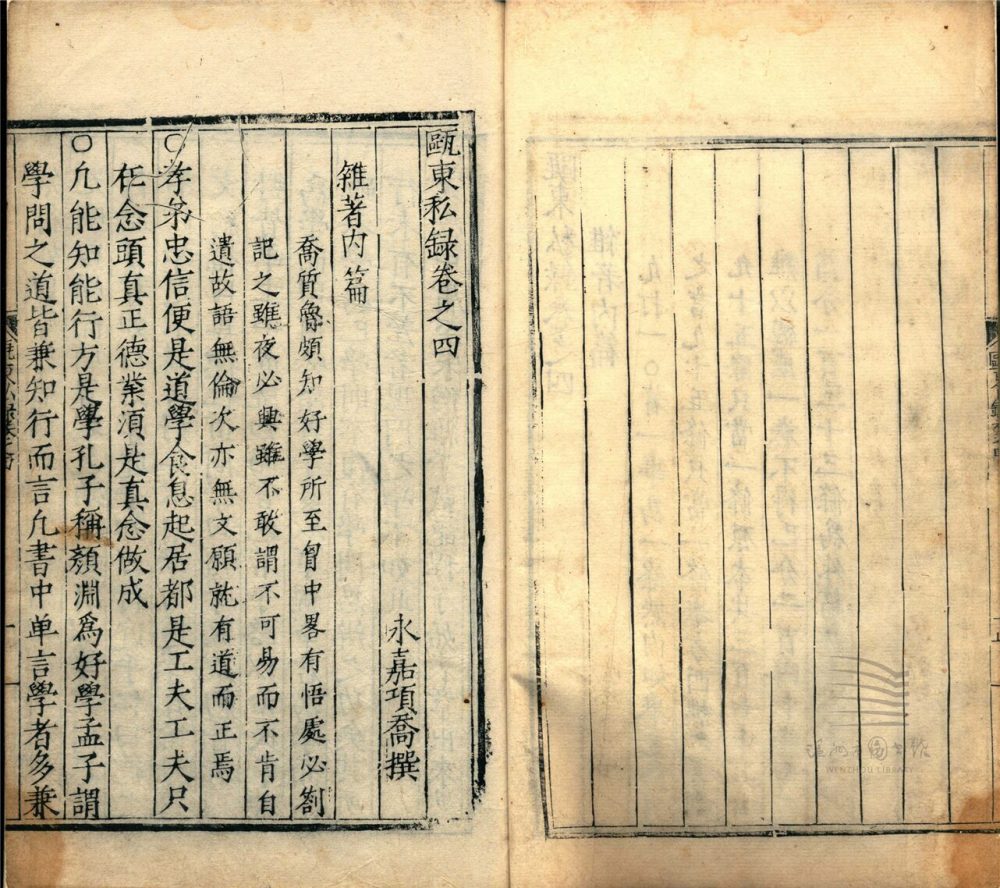 甌東私録卷之四
永嘉項喬撰
雜著内篇
喬質魯頗知好學所至胷中畧有悟處必劄
記之雖夜必興雖不敢謂不可易而不肯自
遺故語無倫次亦無文願就有道而正焉
○孝弟忠信便是道學食息起居都是工夫工夫只
在念頭真正德業須是真念做成
○凡能知能行方是學孔子稱顏淵爲好學孟子謂
學問之道皆兼知行而言凡書中单言學者多兼
WENZHOU LIBRARY